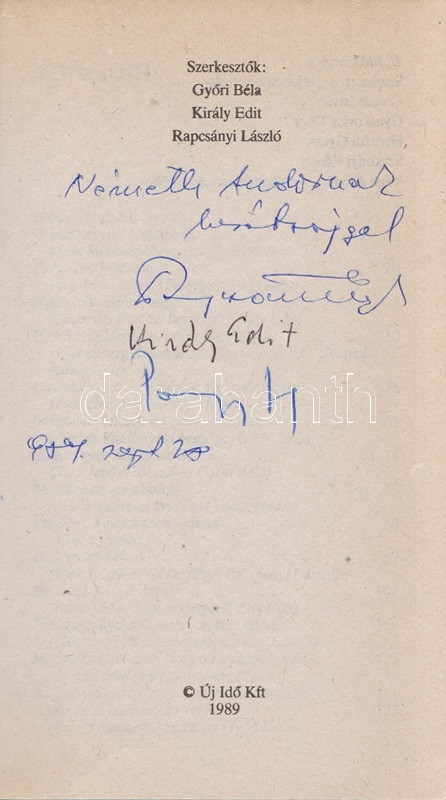 Szerkesztők:
Győri Béla
Király Edit
Rapcsányi László
Németh Andornak
barátsággal
Király Edit
1989. szept 28
darabanth
© Új Idő Kft
1989